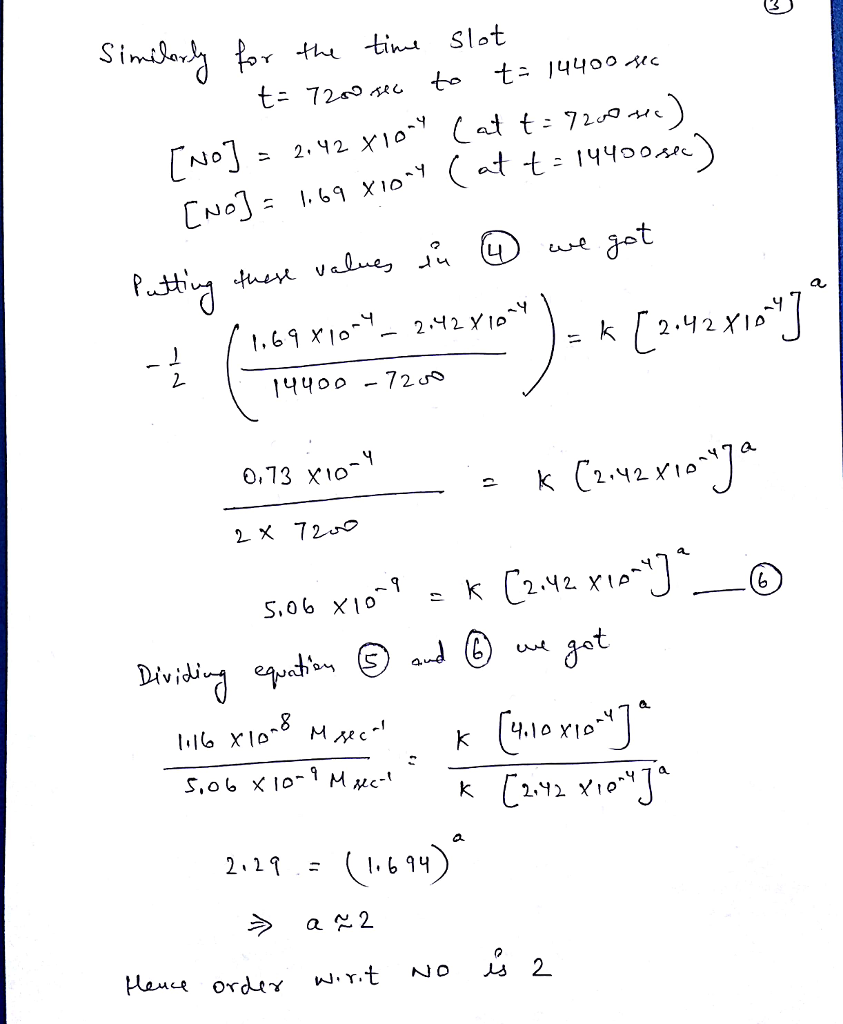 ③
Similarly for the time slot
t = 7200 sec to t = 14400 sec
[NO] = 2.42 X10⁻⁴ (at t = 7200 sec)
[NO] = 1.69 X10⁻⁴ (at t = 14400 sec)
Putting these values in ④ we got
-1/2 (1.69 X10⁻⁴ - 2.42 X10⁻⁴ / 14400 - 7200) = K [2.42 X10⁻⁴]ᵃ
0.73 X10⁻⁴ / 2 X 7200 = K [2.42 X10⁻⁴]ᵃ
5.06 X10⁻⁹ = K [2.42 X10⁻⁴]ᵃ — ⑥
Dividing equation ⑤ and ⑥ we got
1.16 X10⁻⁸ M sec⁻¹ / 5.06 X10⁻⁹ M sec⁻¹ = K [4.10 X10⁻⁴]ᵃ / K [2.42 X10⁻⁴]ᵃ
2.29 = (1.694)ᵃ
⇒ a ≈ 2
Hence order w.r.t NO is 2